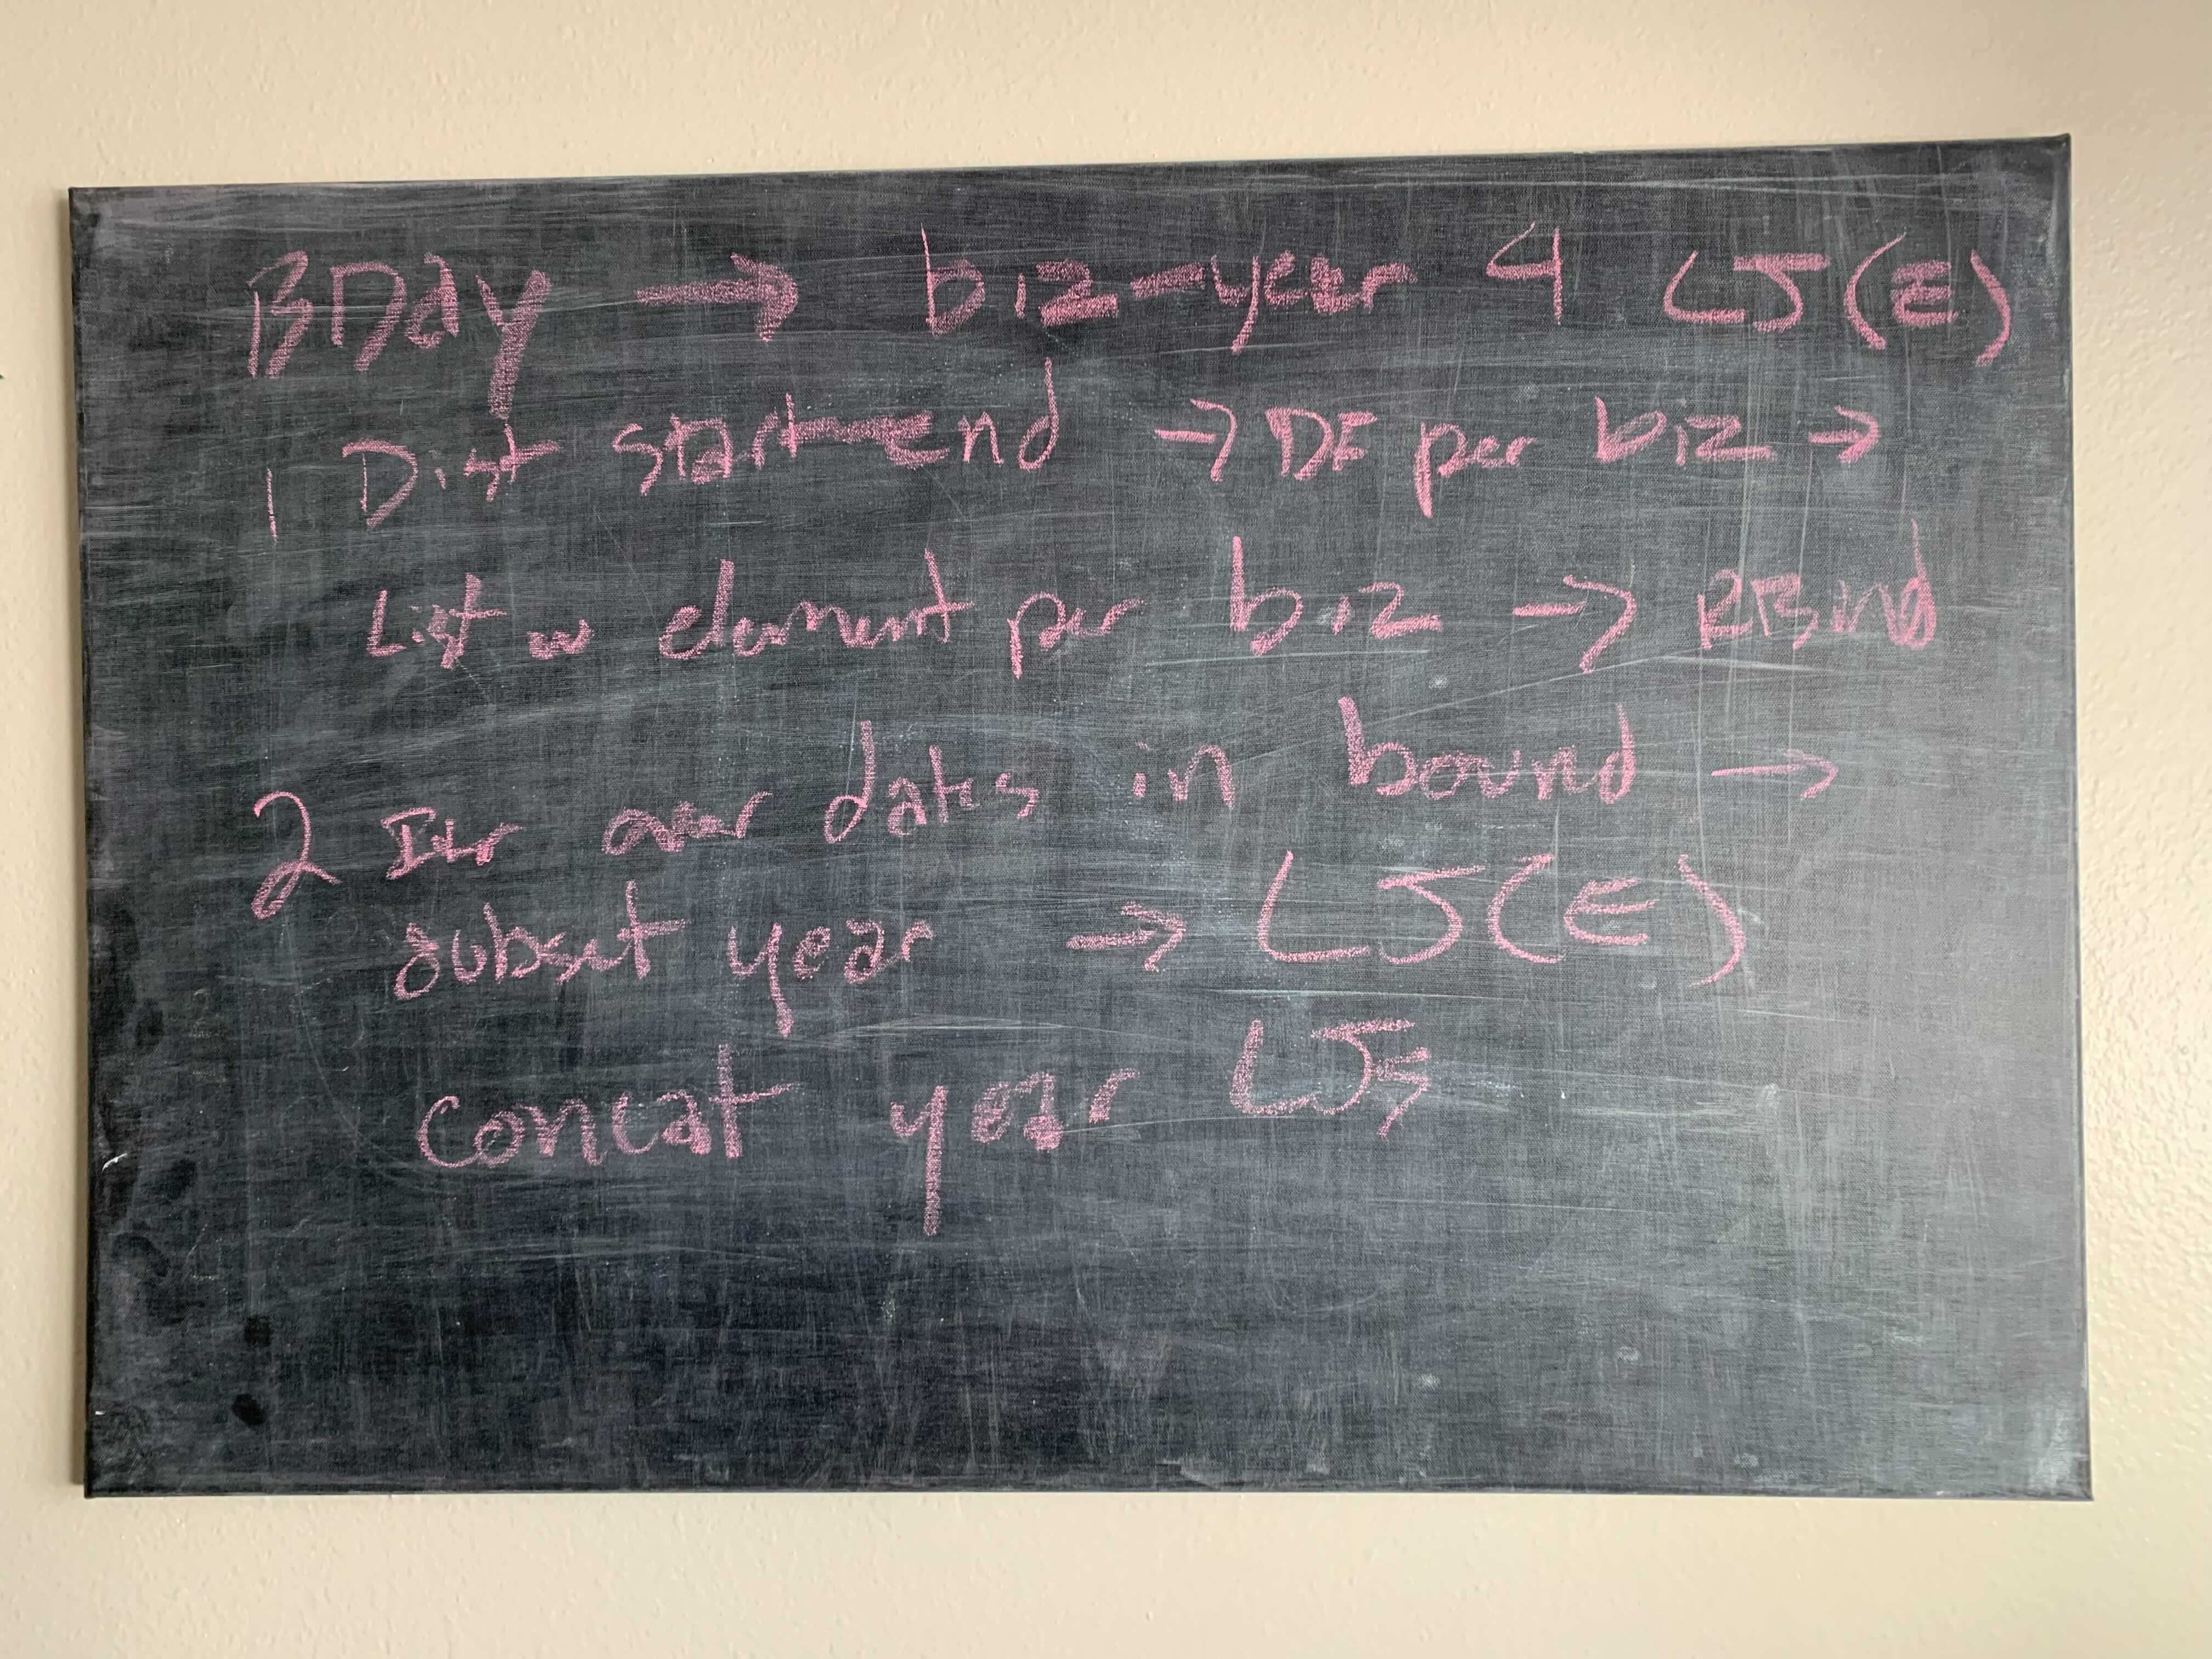 BDay → biz-year 4 LJ(E)
1 Dist start-end → DF per biz →
List w element per biz → RBind
2 Iter over dates in bound →
subset year → LJ(E)
concat year LJs